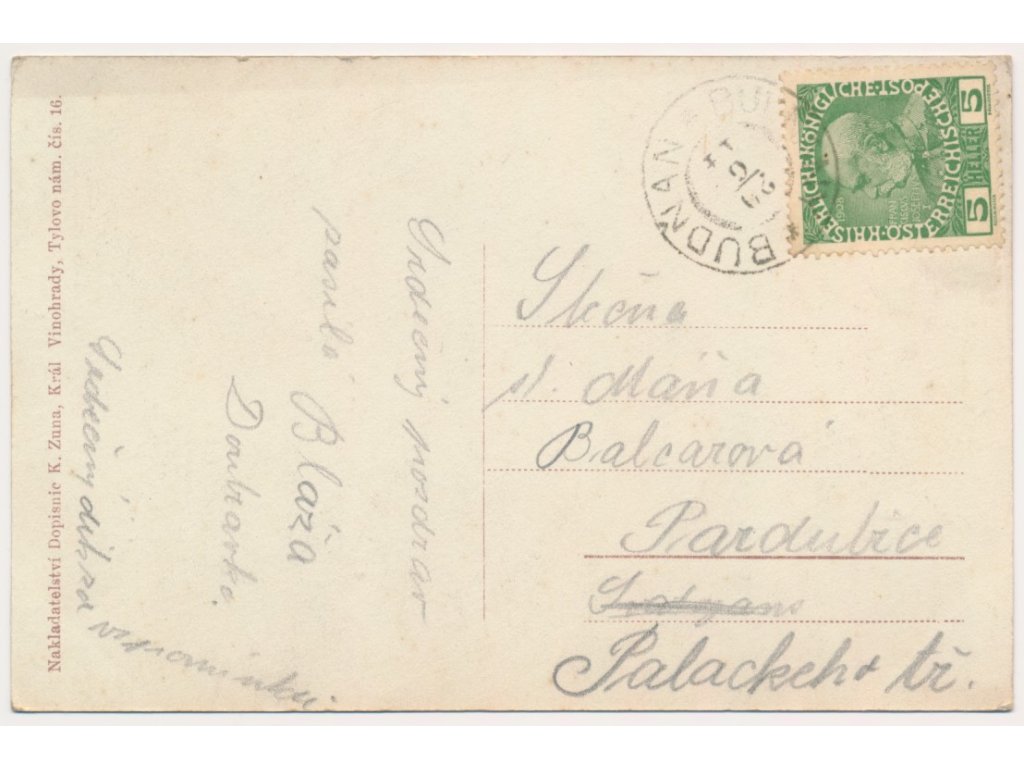 Nakladatelství Dopisnic K. Zuna, Král Vinohrady, Tylovo nám. čís. 16.
Srdečný pozdrav
posílá Blaža
Doubravka
Srdečný dík za vzpomínku
BUDŇAN * BUD
KAISERLICHE KÖNIGLICHE ÖSTERREICHISCHE POST
5 HELLER 5
1908
Slečna
sl. Máňa
Balcarová
Pardubice
Palackeho tř.